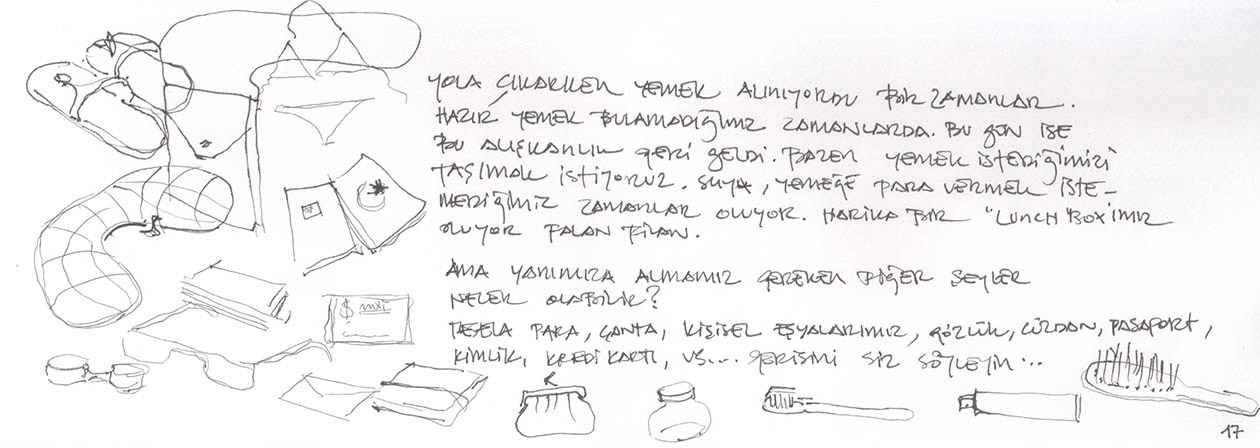 YOLA ÇIKARKEN YEMEK ALINIYORDU BİR ZAMANLAR.
HAZIR YEMEK BULAMADIĞIMIZ ZAMANLARDA. BU GÜN İSE
BU ALIŞKANLIK GERİ GELDİ. BAZEN YEMEK İSTEDİĞİMİZİ
TAŞIMAK İSTİYORUZ. SUYA, YEMEĞE PARA VERMEK İSTE-
MEDİĞİMİZ ZAMANLAR OLUYOR. HARİKA BİR "LUNCH"BOX'IMIZ
OLUYOR FALAN FİLAN.
AMA YANIMIZA ALMAMIZ GEREKEN DİĞER ŞEYLER
NELER OLABİLİR?
MESELA PARA, ÇANTA, KİŞİSEL EŞYALARIMIZ, GÖZLÜK, CÜZDAN, PASAPORT,
KİMLİK, KREDİ KARTI, VS... GERİSİNİ SİZ SÖYLEYİN...
$
17